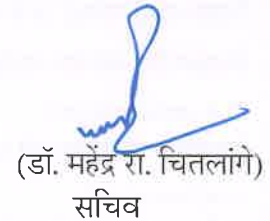 (डॉ. महेंद्र रा. चितलांगे)
सचिव